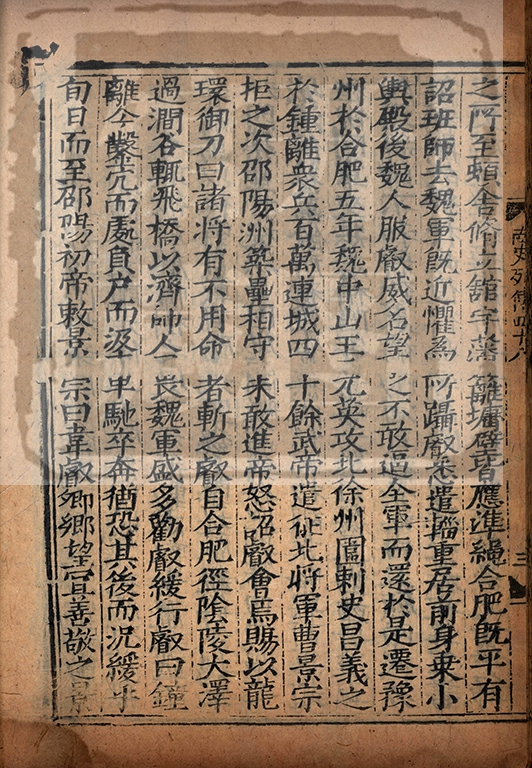 之所至頓舍脩立館宇藩籬墉壁皆應準繩合肥既平有
詔班師去魏軍既近懼為所躡叡悉遣輜重居前身乗小
輿殿後魏人服叡威名望之不敢逼全軍而還於是遷豫
州於合肥五年魏中山王元英攻北徐州圍刺史昌義之
於鍾離衆兵百萬連城四十餘武帝遣征北將軍曹景宗
拒之次邵陽洲築壘相守未敢進帝怒詔叡會焉賜以龍
環御刀曰諸將有不用命者斬之叡自合肥徑陰陵大澤
過澗谷輒飛橋以濟師人畏魏軍盛多勸叡緩行叡曰鍾
離今鑿穴而處負戶而汲車馳卒奔猶恐其後而況緩乎
旬日而至邵陽初帝敕景宗曰韋叡卿鄉望宜善敬之景
南史列傳四十八
三